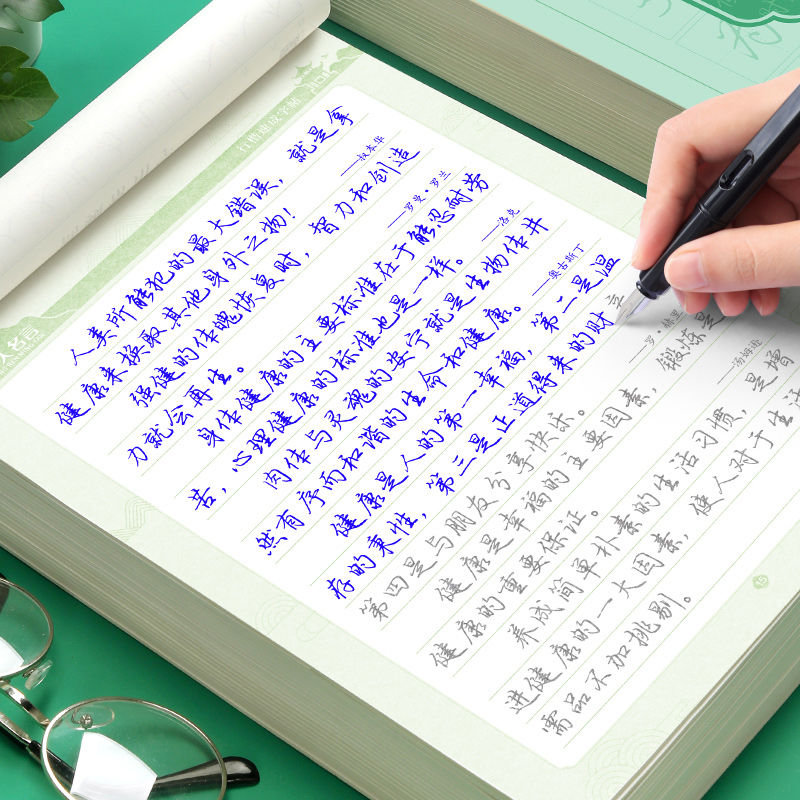 行楷速成字帖
人名言
人类所能犯的最大错误，就是拿
健康来换取其他身外之物！
——叔本华
强健的体魄恢复时，智力和创造
力就会再生。
——罗曼·罗兰
身体健康的主要标准在于能忍耐劳
苦，心理健康的标准也是一样。
——洛克
肉体与灵魂的安宁就是生物体井
然有序而和谐的生命和健康。
——奥古斯丁
健康是人的第一幸福，第二是温
存的秉性，第三是正道得来的财
第四是与朋友分享快乐。
——罗·赫里
健康是幸福的主要因素，锻炼是
健康的重要保证。
——汤姆逊
养成简单朴素的生活习惯，是增
进健康的一大因素，使人对于生活
需品不加挑剔。
15